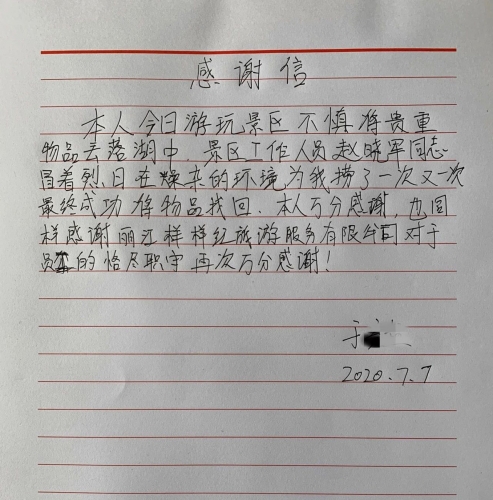 感谢信
本人今日游玩景区不慎将贵重
物品丢落湖中，景区工作人员赵晓军同志
冒着烈日在燥杂的环境为我捞了一次又一次
最终成功将物品找回．本人万分感谢，也同
样感谢丽江样样红旅游服务有限公司对于
员工的恪尽职守再次万分感谢！
于
2020.7.7